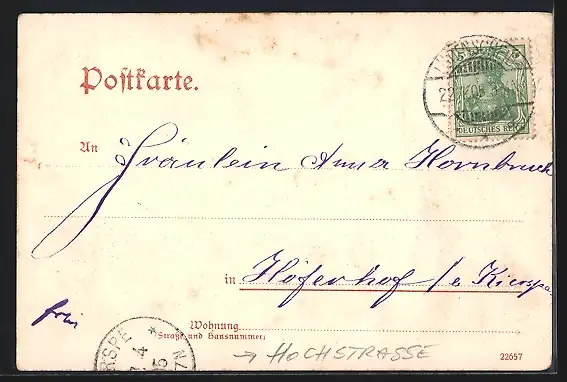 Postkarte.
DEUTSCHES REICH
An Fräulein Anna Hornbruch
in Höferhof / e Kierspe
frei
Wohnung
(Straße und Hausnummer)
→ HOCHSTRASSE
22657